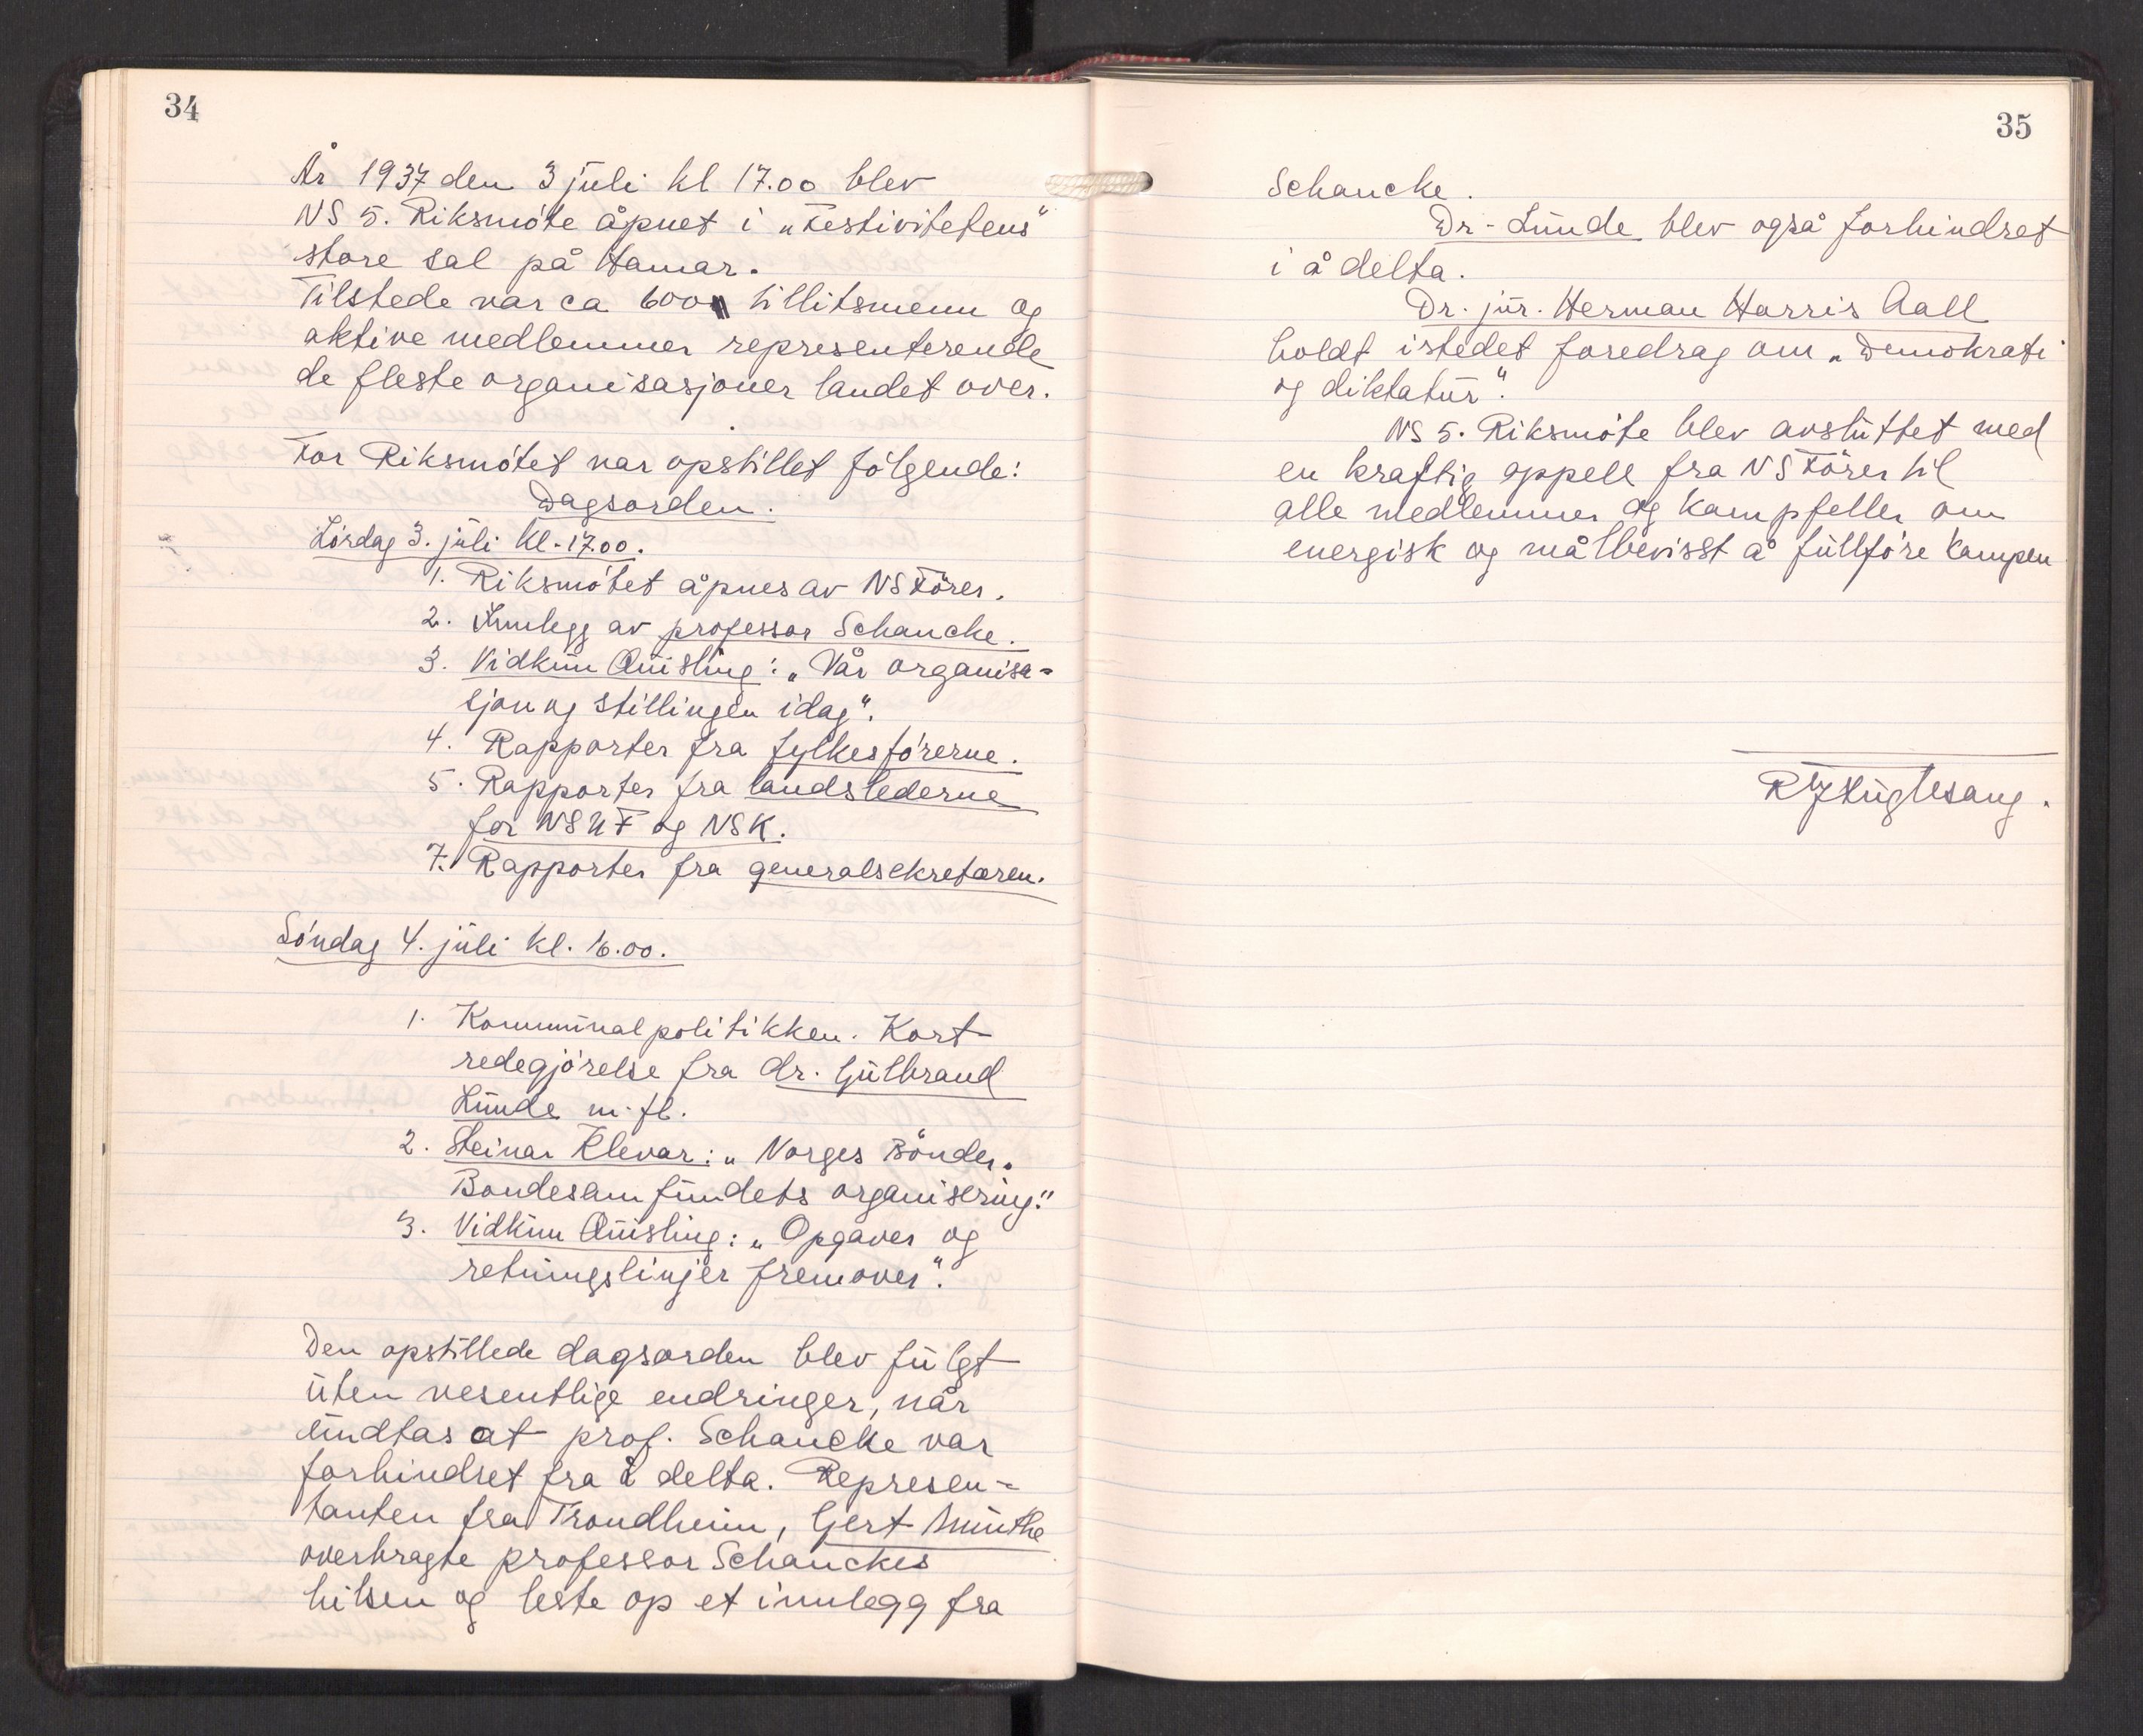 34
År 1937 den 3 juli kl 17.00 blev
NS 5. Riksmöte åpnet i „Festivitetens"
store sal på Hamar.
Tilstede var ca 600 tillitsmenn og
aktive medlemmer representerende
de fleste organisasjoner landet over.
For Riksmötet var opstillet fölgende:
Dagsorden.
Lördag 3. juli kl. 17.00.
1. Riksmötet åpnes av NS Förer.
2. Innlegg av professor Schancke.
3. Vidkun Quisling: „Vår organisa-
sjon og stillingen idag".
4. Rapporter fra fylkesförerne.
5. Rapporter fra landslederne
for NSUF og NSK.
7. Rapporter fra generalsekretæren.
Söndag 4. juli kl. 16.00.
1. Kommunalpolitikken. Kort
redegjörelse fra dr. Gulbrand
Lunde m. fl.
2. Steinar Klevar: „Norges Bönder.
Bondesamfundets organisering."
3. Vidkun Quisling: „Opgaver og
retningslinjer fremover".
Den opstillede dagsorden blev fulgt
uten vesentlige endringer, når
undtas at prof. Schancke var
forhindret fra å delta. Represen-
tanten fra Trondheim, Gert Munthe
overbragte professor Schanckes
hilsen og leste op et innlegg fra
35
Schancke.
Dr. Lunde blev også forhindret
i å delta.
Dr. jur. Herman Harris Aall
holdt istedet foredrag om „Demokrati
og diktatur".
NS 5. Riksmöte blev avsluttet med
en kraftig appell fra NS Förer til
alle medlemmer og kampfeller om
energisk og målbevisst å fullföre kampen